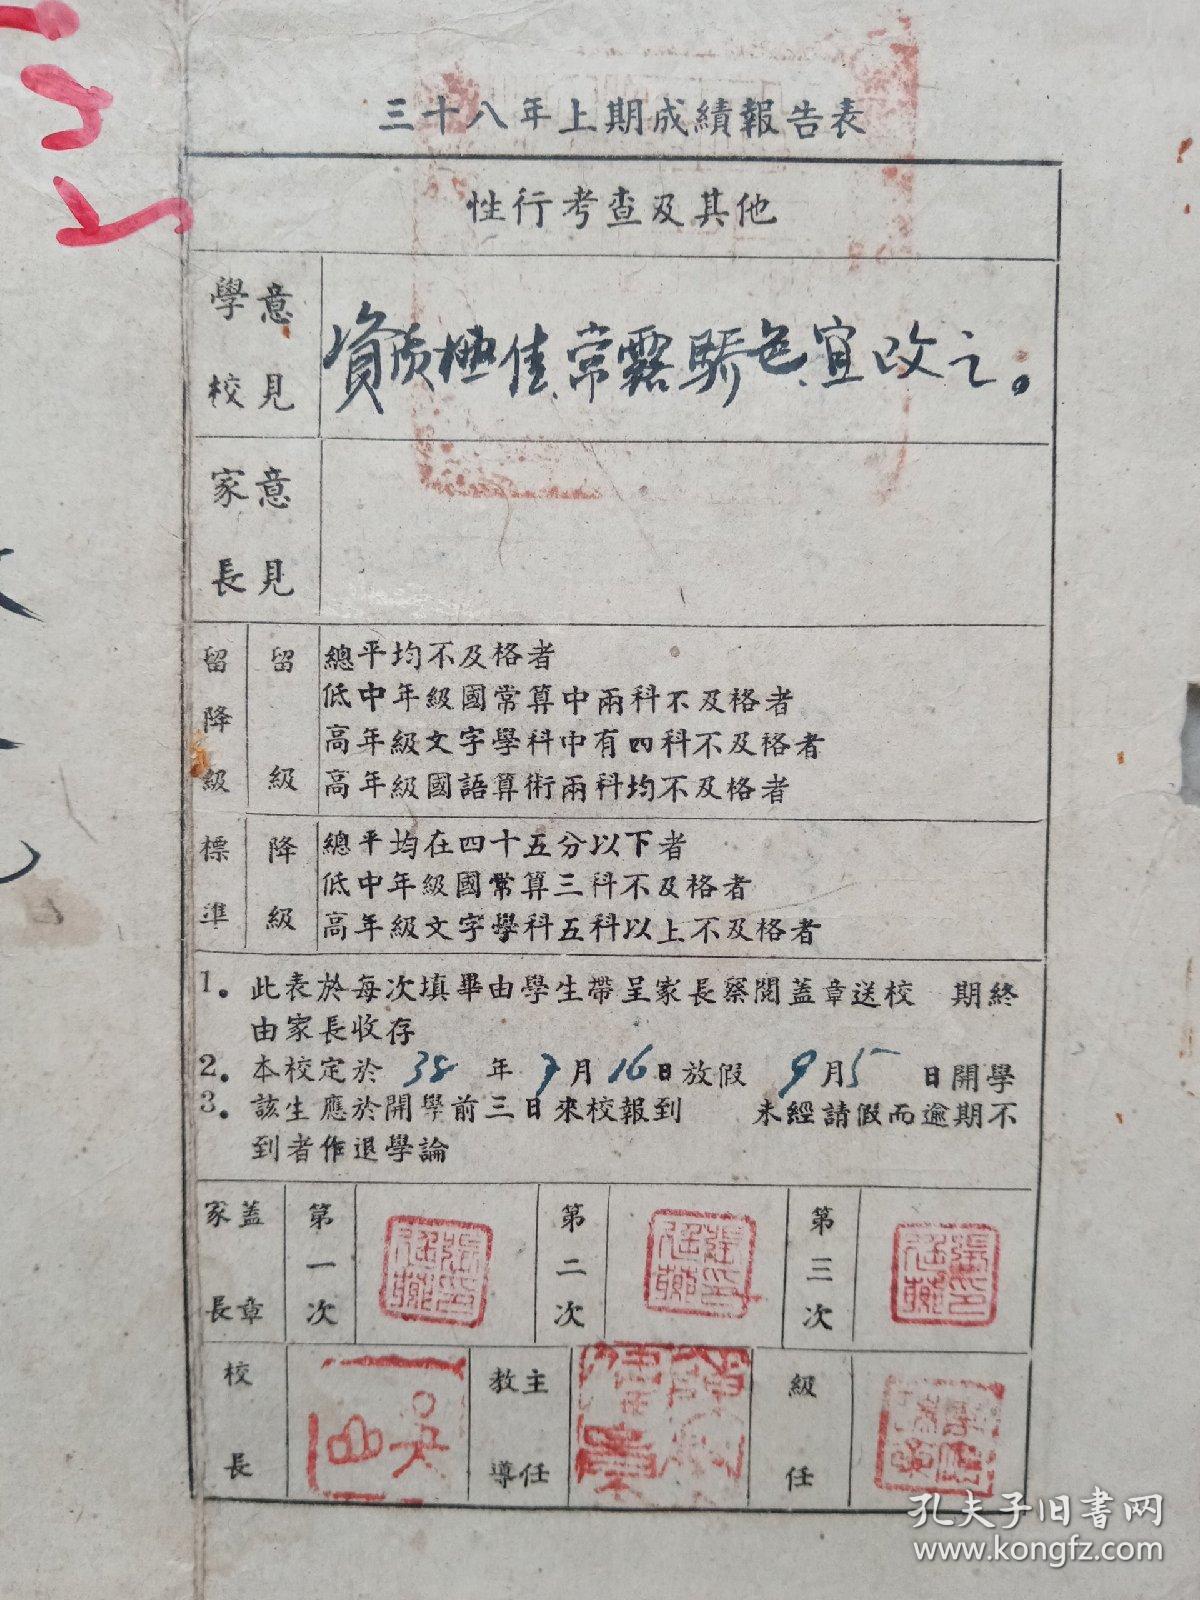 三十八年上期成績報告表
性行考查及其他
學校意見
資质極佳,常露驕色,宜改之。
家長意見
留降級標準
留級
總平均不及格者
低中年級國常算中兩科不及格者
高年級文字學科中有四科不及格者
高年級國語算術兩科均不及格者
降級
總平均在四十五分以下者
低中年級國常算三科不及格者
高年級文字學科五科以上不及格者
1. 此表於每次填畢由學生帶呈家長察閱蓋章送校 期終
由家長收存
2. 本校定於 38 年 7月16日放假 9月5 日開學
3. 該生應於開學前三日來校報到 未經請假而逾期不
到者作退學論
家長蓋章
第一次
第二次
第三次
校長
教導主任
級任
孔夫子旧书网
www.kongfz.com